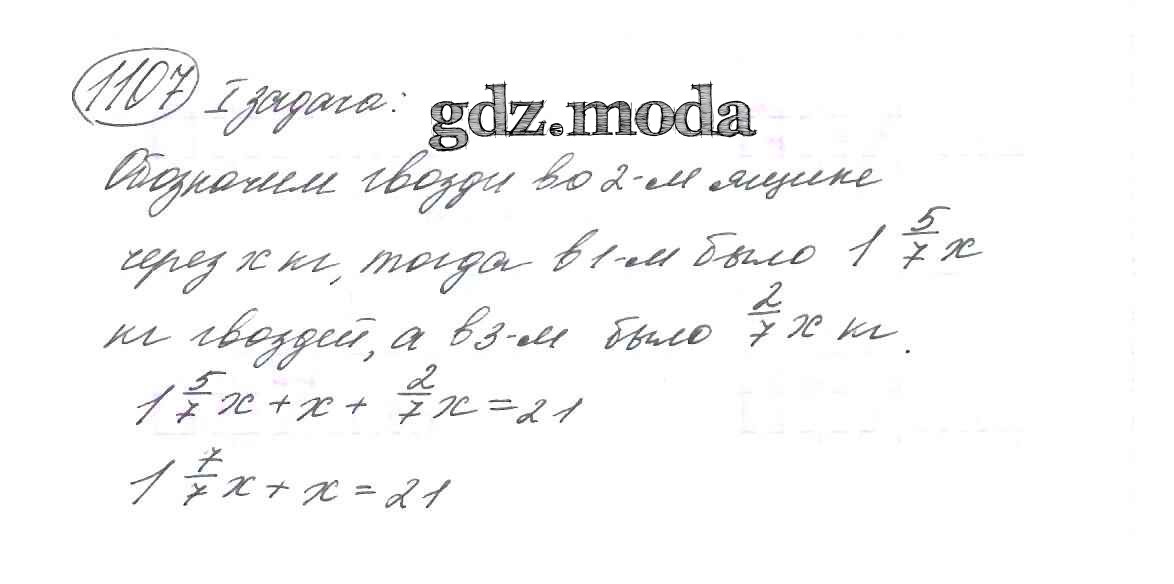 1107 I задача:
gdz.moda
Обозначим гвозди во 2-м ящике
через x кг, тогда в 1-м было 1 5/7 x
кг гвоздей, а в 3-м было 2/7 x кг.
1 5/7 x + x + 2/7 x = 21
1 7/7 x + x = 21